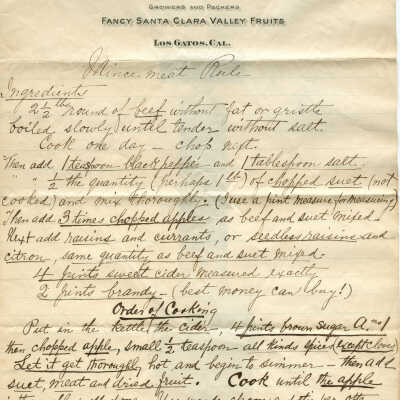 GROWERS AND PACKERS
FANCY SANTA CLARA VALLEY FRUITS
LOS GATOS, CAL.
Mince meat Rule
Ingredients
2 1/2 lb round of beef without fat or gristle
boiled slowly until tender without salt.
Cook one day – chop next.
Then add 1 teaspoon black pepper and 1 tablespoon salt.
" " 1/2 the quantity (perhaps 1 lb) of chopped suet (not
cooked) and mix thoroughly. (I use a pint measure for measuring)
Then add 3 times chopped apples as beef and suet mixed.
Next add raisins and currants, or seedless raisins and
citron, same quantity as beef and suet mixed.
4 pints sweet cider measured exactly
2 pints brandy – (best money can buy!)
Order of Cooking
Put in the kettle the cider, 4 pints brown sugar
then chopped apple, small 1/2 teaspoon all kinds spices except cloves
Let it get thoroughly hot and begin to simmer – then add
suet, meat and dried fruit. Cook until the apple